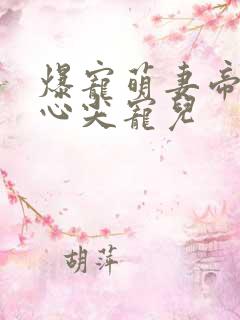 爆寵萌妻帝
心尖寵兒
胡萍